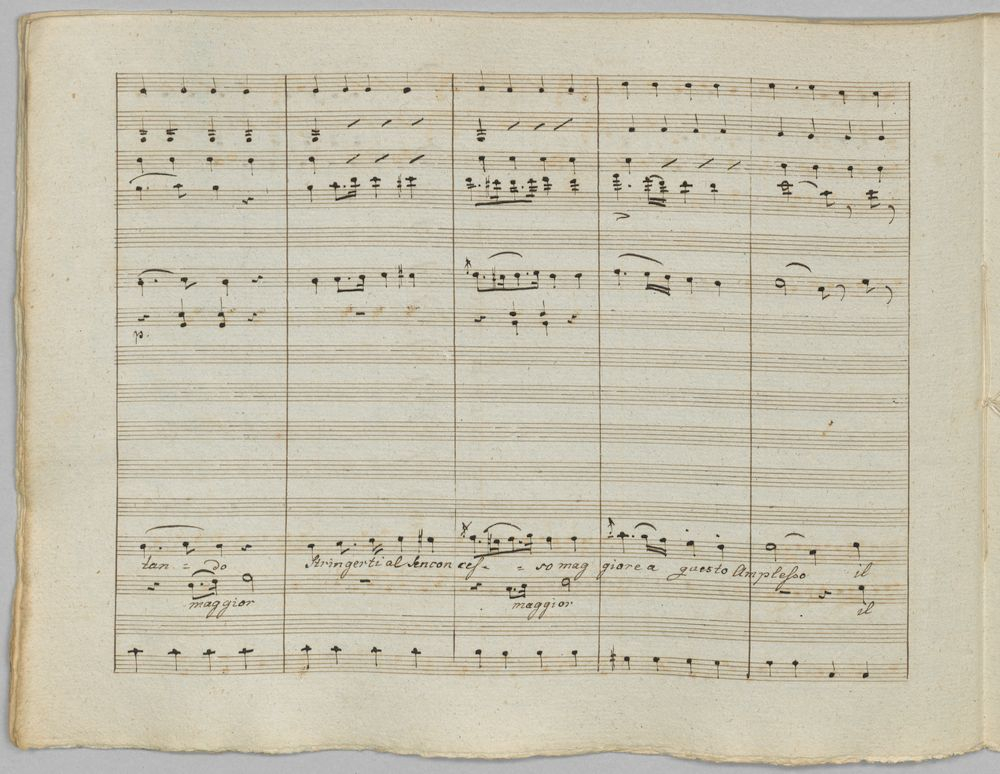 p.
tan - do Stringerti al Sen con ces - - so mag giore a questo Amplesso il
maggior maggior il